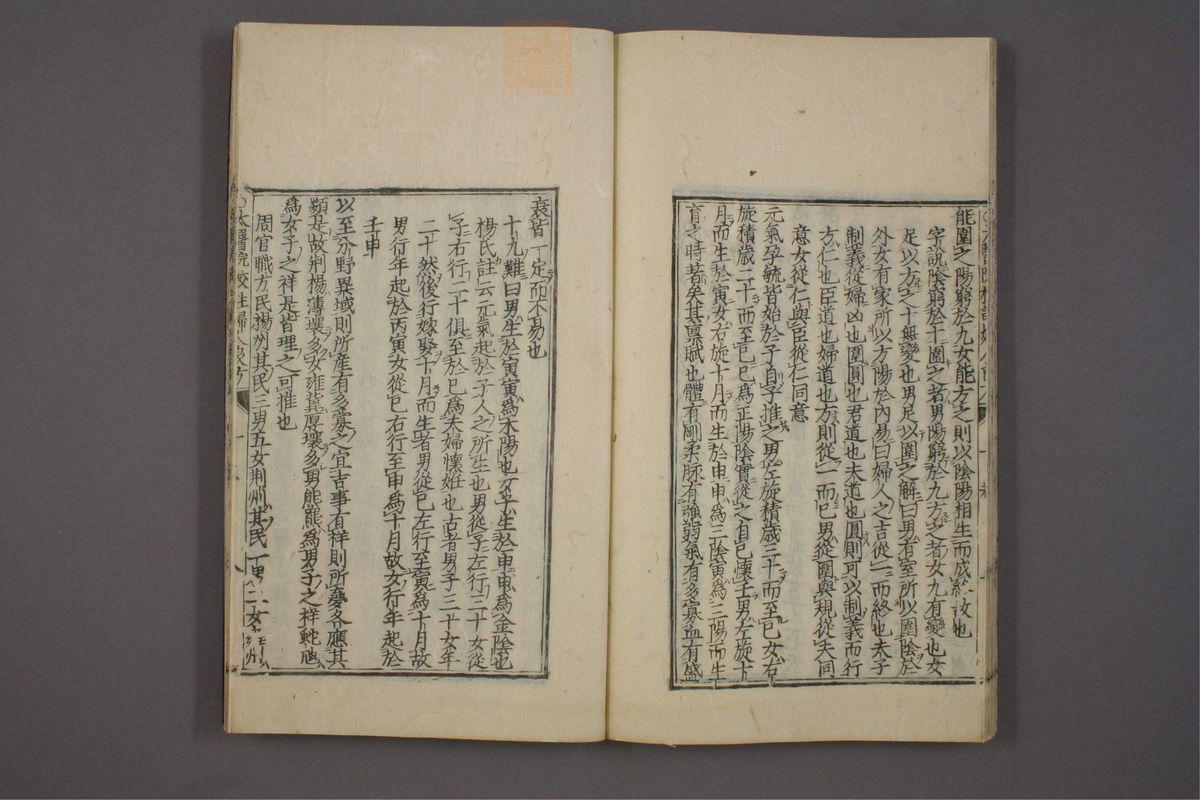 能圍之陽窮於九女能方之則以陰陽相生而成終故也
字說陰窮於十圍之者男陽窮於九方之者女九有變也女
足以方之十無變也男足以圍之解曰男有室所以圍陰於
外女有家所以方陽於內易曰婦人之吉從一而終也夫子
制義從婦凶也圍圓也君道也夫道也圓則可以制義而行
方仁也臣道也婦道也方則從一而已男從圍與規從夫同
意女從仁與臣從仁同意
元氣孕毓皆始於子自子推之男左旋積歲三十而至巳女右
旋積歲二十而至巳巳為正陽陰實從之自巳懷壬男左旋十
月而生於寅女右旋十月而生於申申為三陰寅為三陽而生
育之時著矣其稟賦也體有剛柔脉有強弱氣有多寡血有盛
衰皆一定而不易也
十九難曰男生於寅寅為木陽也女子生於申申為金陰也
楊氏註云元氣起於子人之所生也男從子左行三十女從
子右行二十俱至於巳為夫婦懷姙也古者男子三十女年
二十然後行嫁娶十月而生者男從巳左行至寅為十月故
男行年起於丙寅女從巳右行至申為十月故女行年起於
壬申
以至分野異域則所産有多寡之宜吉事有祥則所夢各應其
類是故荆楊薄壤多女雍冀厚壤多男熊羆為男子之祥蛇虺
為女子之祥是皆理之可推也
周官職方氏揚州其民三男五女荆州其民一男二女
太醫院校註婦人良方